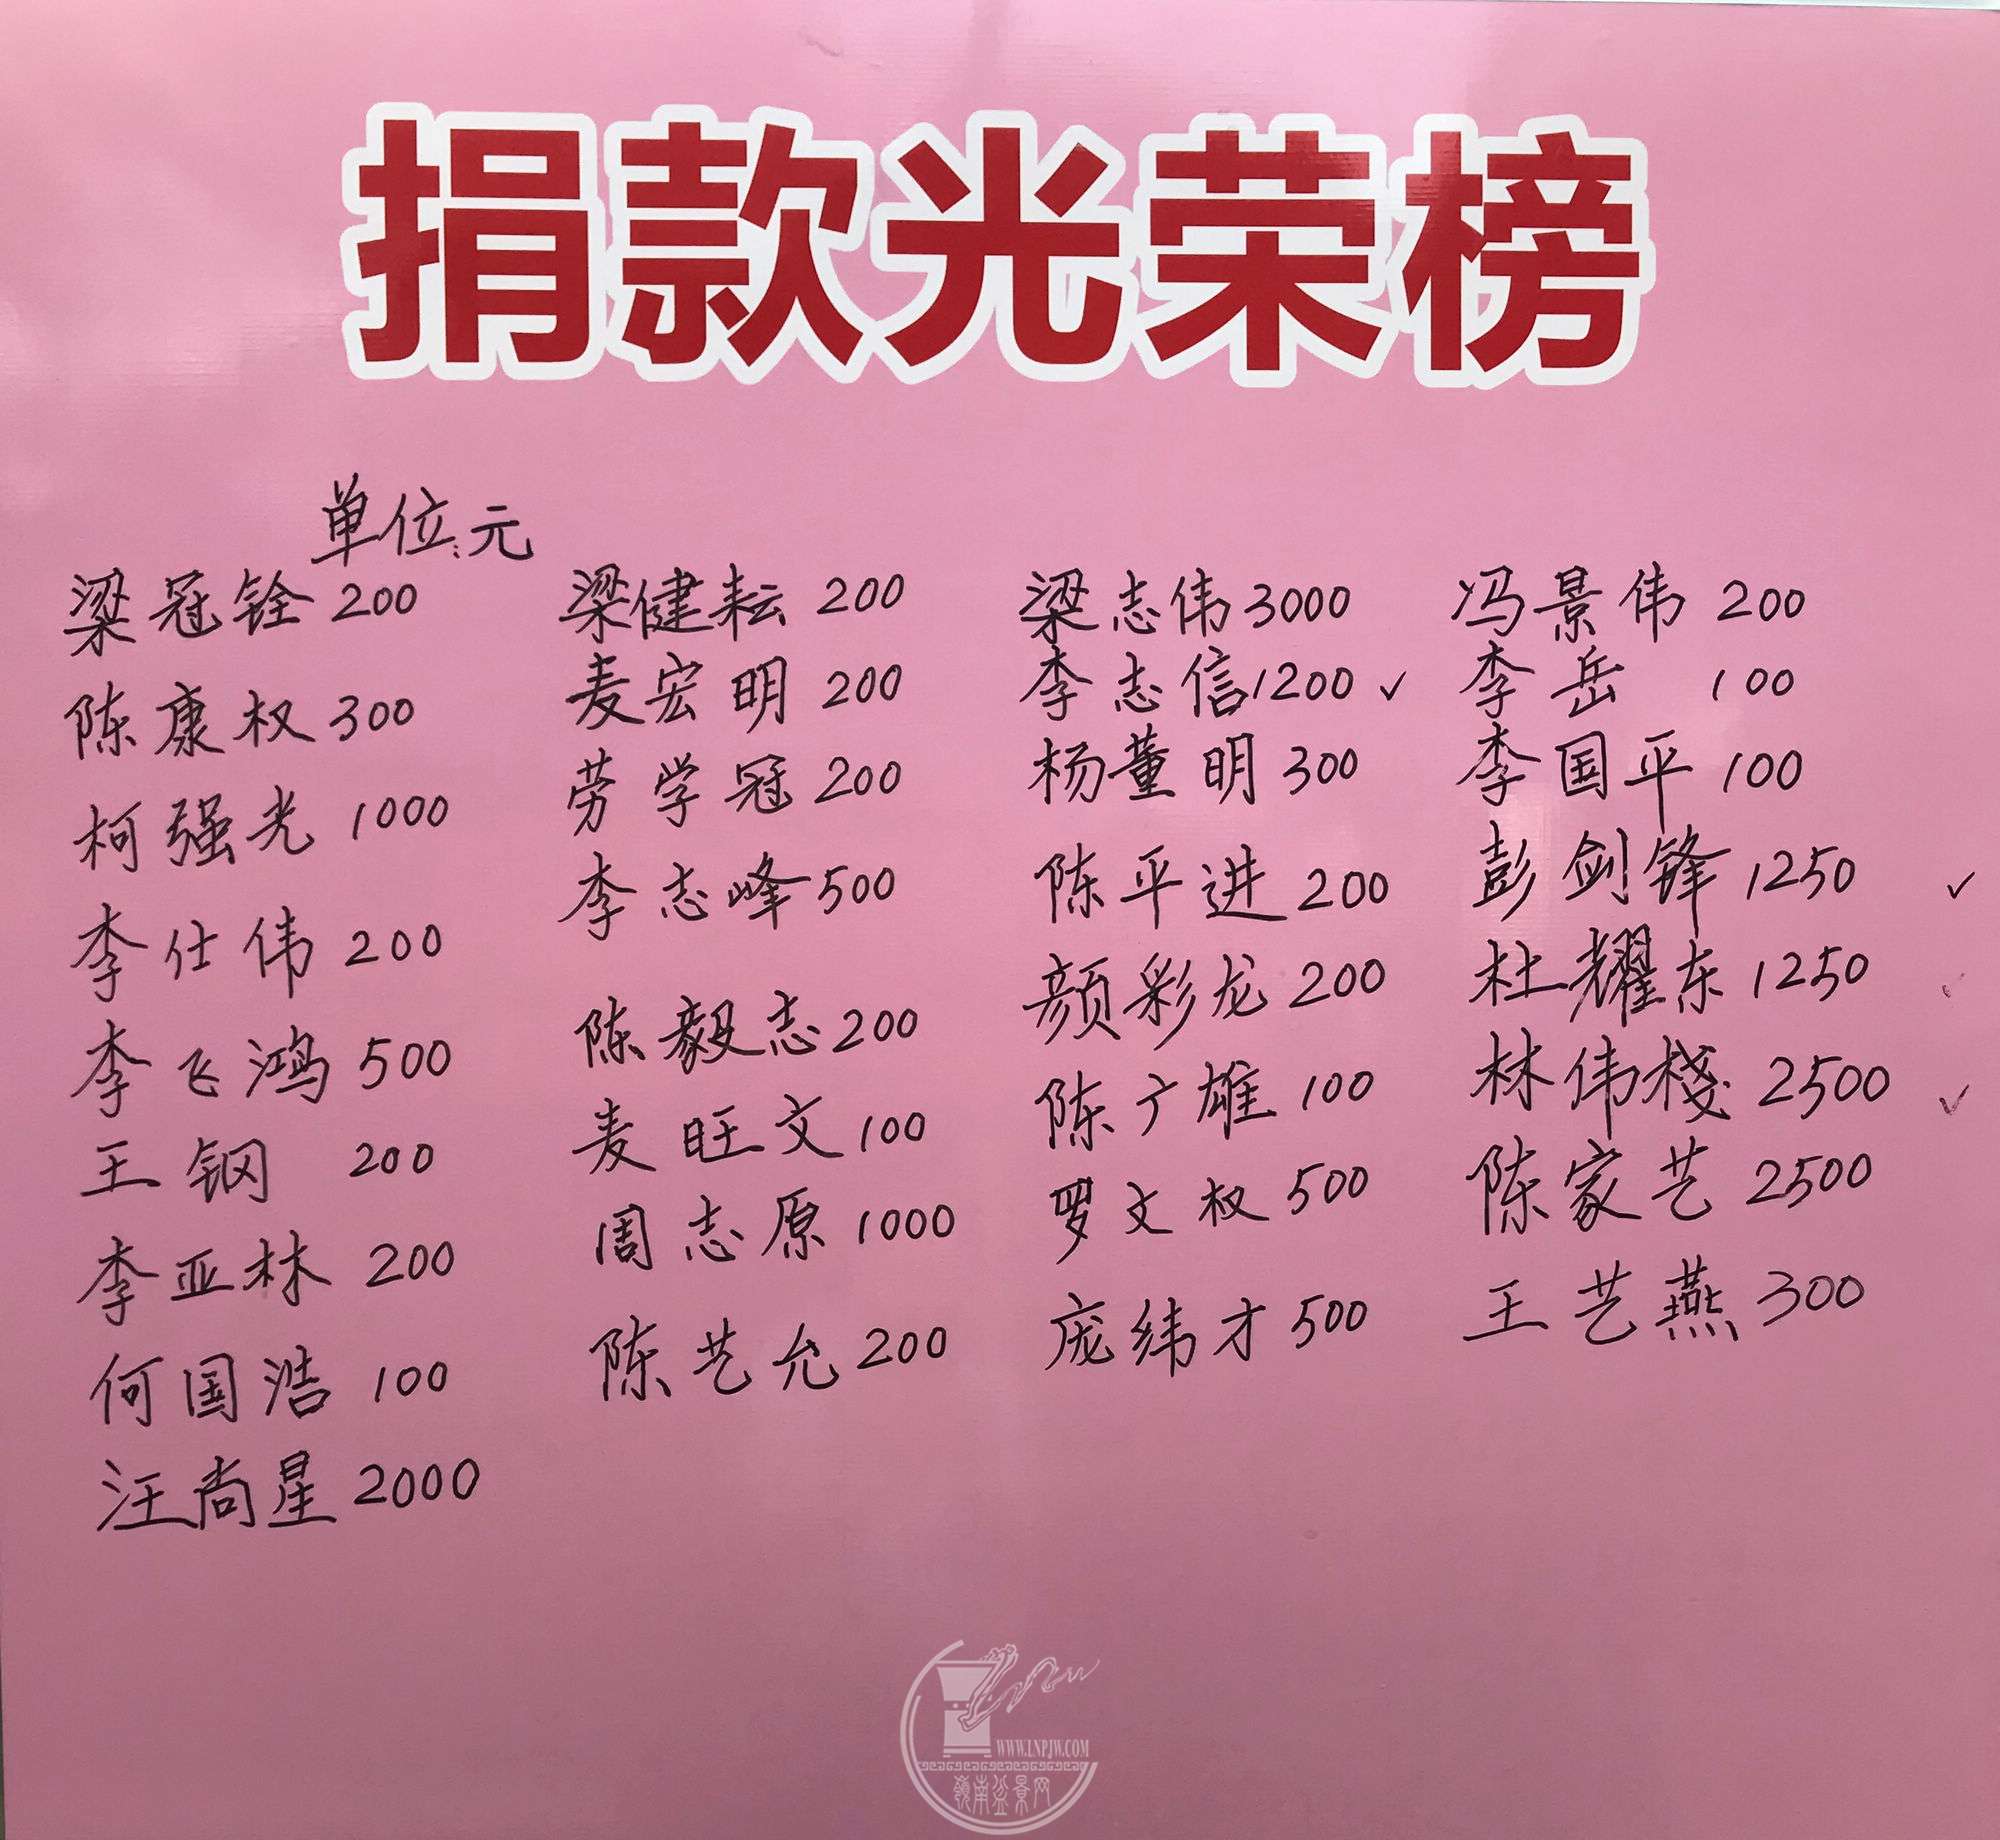 捐款光荣榜
单位:元
梁冠铨 200
陈康权 300
柯强光 1000
李仕伟 200
李飞鸿 500
王钢 200
李亚林 200
何国浩 100
汪尚星 2000
梁健耘 200
麦宏明 200
劳学冠 200
李志峰 500
陈毅志 200
麦旺文 100
周志原 1000
陈艺允 200
梁志伟 3000
李志信 1200 ✓
杨董明 300
陈平进 200
颜彩龙 200
陈广雄 100
罗文权 500
庞纬才 500
冯景伟 200
李岳 100
李国平 100
彭剑锋 1250 ✓
杜耀东 1250 ✓
林伟栈 2500 ✓
陈家艺 2500
王艺燕 300
WWW.LNPJW.COM
嶺南盆景网